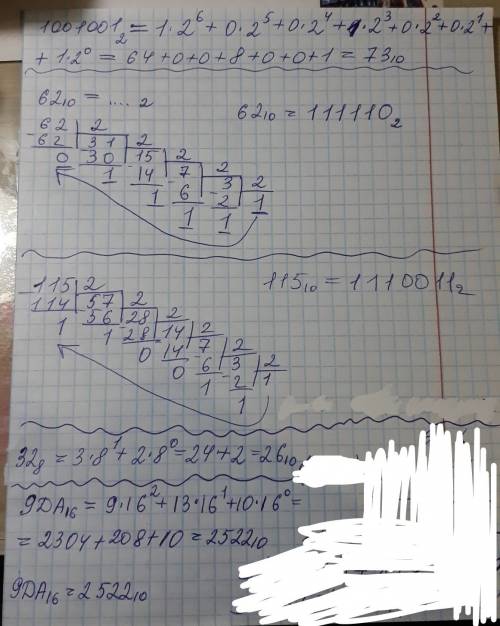 1001001₂ = 1·2⁶ + 0·2⁵ + 0·2⁴ + 1·2³ + 0·2² + 0·2¹ +
+ 1·2⁰ = 64 + 0 + 0 + 8 + 0 + 0 + 1 = 73₁₀
62₁₀ = .... ₂
62₁₀ = 111110₂
-62 | 2
62 | -31 | 2
0 | 30 | -15 | 2
1 | 14 | -7 | 2
1 | 6 | -3 | 2
1 | 2 | 1
1
-115 | 2
114 | -57 | 2
1 | 56 | -28 | 2
1 | 28 | -14 | 2
0 | 14 | -7 | 2
0 | 6 | -3 | 2
1 | 2 | 1
1
115₁₀ = 1110011₂
32₈ = 3·8¹ + 2·8⁰ = 24 + 2 = 26₁₀
9DA₁₆ = 9·16² + 13·16¹ + 10·16⁰ =
= 2304 + 208 + 10 = 2522₁₀
9DA₁₆ = 2522₁₀